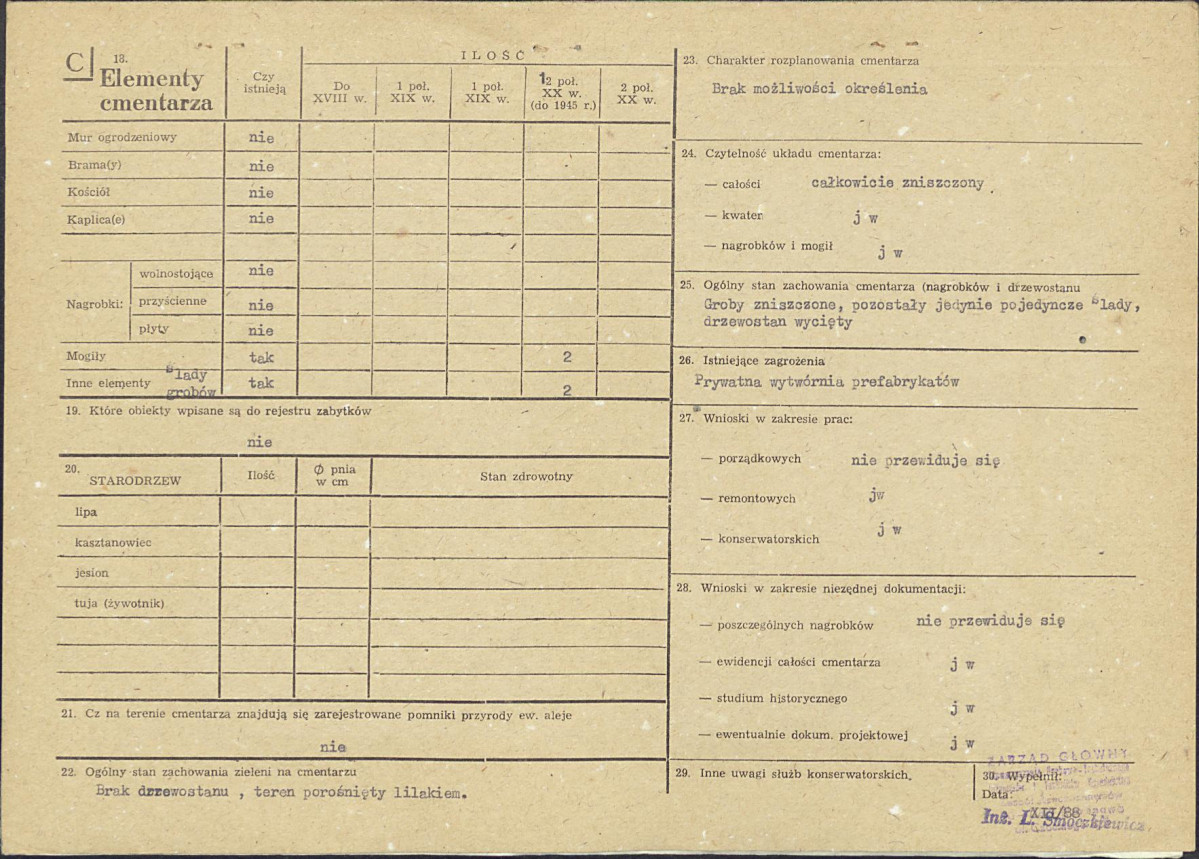 C
18.
Elementy
cmentarza
Czy
istnieją
ILOŚĆ
Do
XVIII w.
1 poł.
XIX w.
1 poł.
XIX w.
12 poł.
XX w.
(do 1945 r.)
2 poł.
XX w.
Mur ogrodzeniowy nie
Brama(y) nie
Kościół nie
Kaplica(e) nie
Nagrobki:
wolnostojące nie
przyścienne nie
płyty nie
Mogiły tak 2
Inne elementy ślady
grobów tak 2
19. Które obiekty wpisane są do rejestru zabytków
nie
20.
STARODRZEW
Ilość
Ø pnia
w cm
Stan zdrowotny
lipa
kasztanowiec
jesion
tuja (żywotnik)
21. Cz na terenie cmentarza znajdują się zarejestrowane pomniki przyrody ew. aleje
nie
22. Ogólny stan zachowania zieleni na cmentarzu
Brak drzewostanu , teren porośnięty lilakiem.
23. Charakter rozplanowania cmentarza
Brak możliwości określenia
24. Czytelność układu cmentarza:
— całości całkowicie zniszczony
— kwater j w
— nagrobków i mogił j w
25. Ogólny stan zachowania cmentarza (nagrobków i drzewostanu
Groby zniszczone, pozostały jedynie pojedyncze ślady,
drzewostan wycięty
26. Istniejące zagrożenia
Prywatna wytwórnia prefabrykatów
27. Wnioski w zakresie prac:
— porządkowych nie przewiduje się
— remontowych jw
— konserwatorskich j w
28. Wnioski w zakresie niezędnej dokumentacji:
— poszczególnych nagrobków nie przewiduje się
— ewidencji całości cmentarza j w
— studium historycznego j w
— ewentualnie dokum. projektowej j w
29. Inne uwagi służb konserwatorskich.
ZARZĄD GŁÓWNY
30. Wypełnił:
Data:
XII/88
Inż. L. Smoczkiewicz